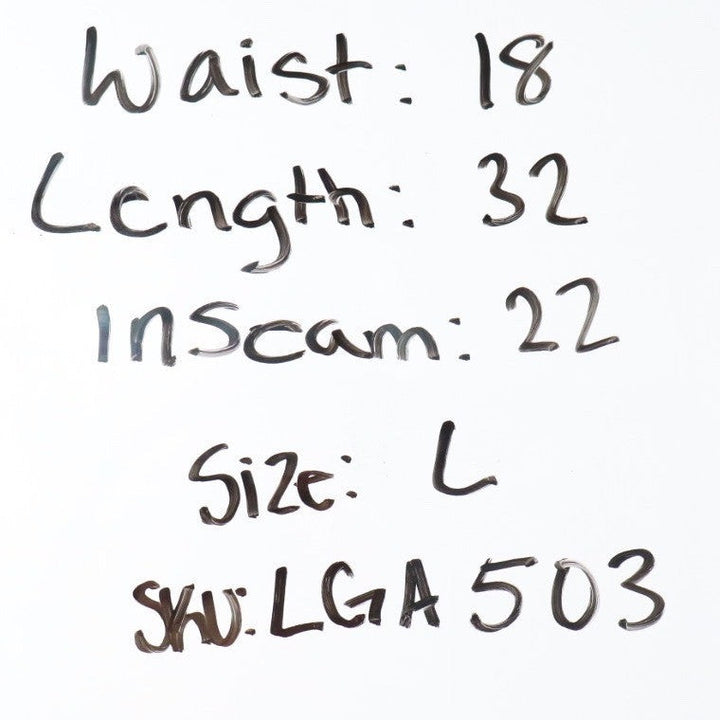 Waist: 18
Length: 32
Inseam: 22
Size: L
SKU: LGA 503